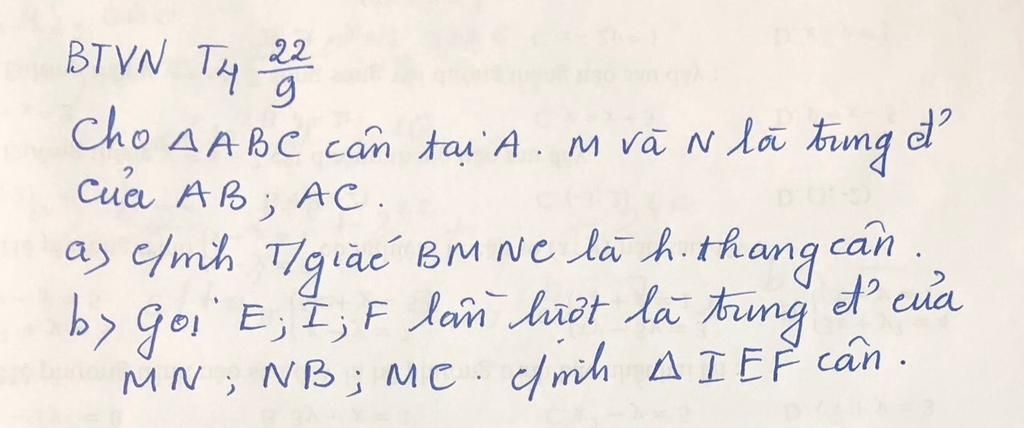 BTVN T4 22/9
Cho ΔABC cân tại A. M và N là trung đ'
của AB; AC.
a> c/minh T/giác BMNC là h.thang cân.
b> Gọi E; I; F lần lượt là trung đ' của
MN; NB; MC. c/minh ΔIEF cân.